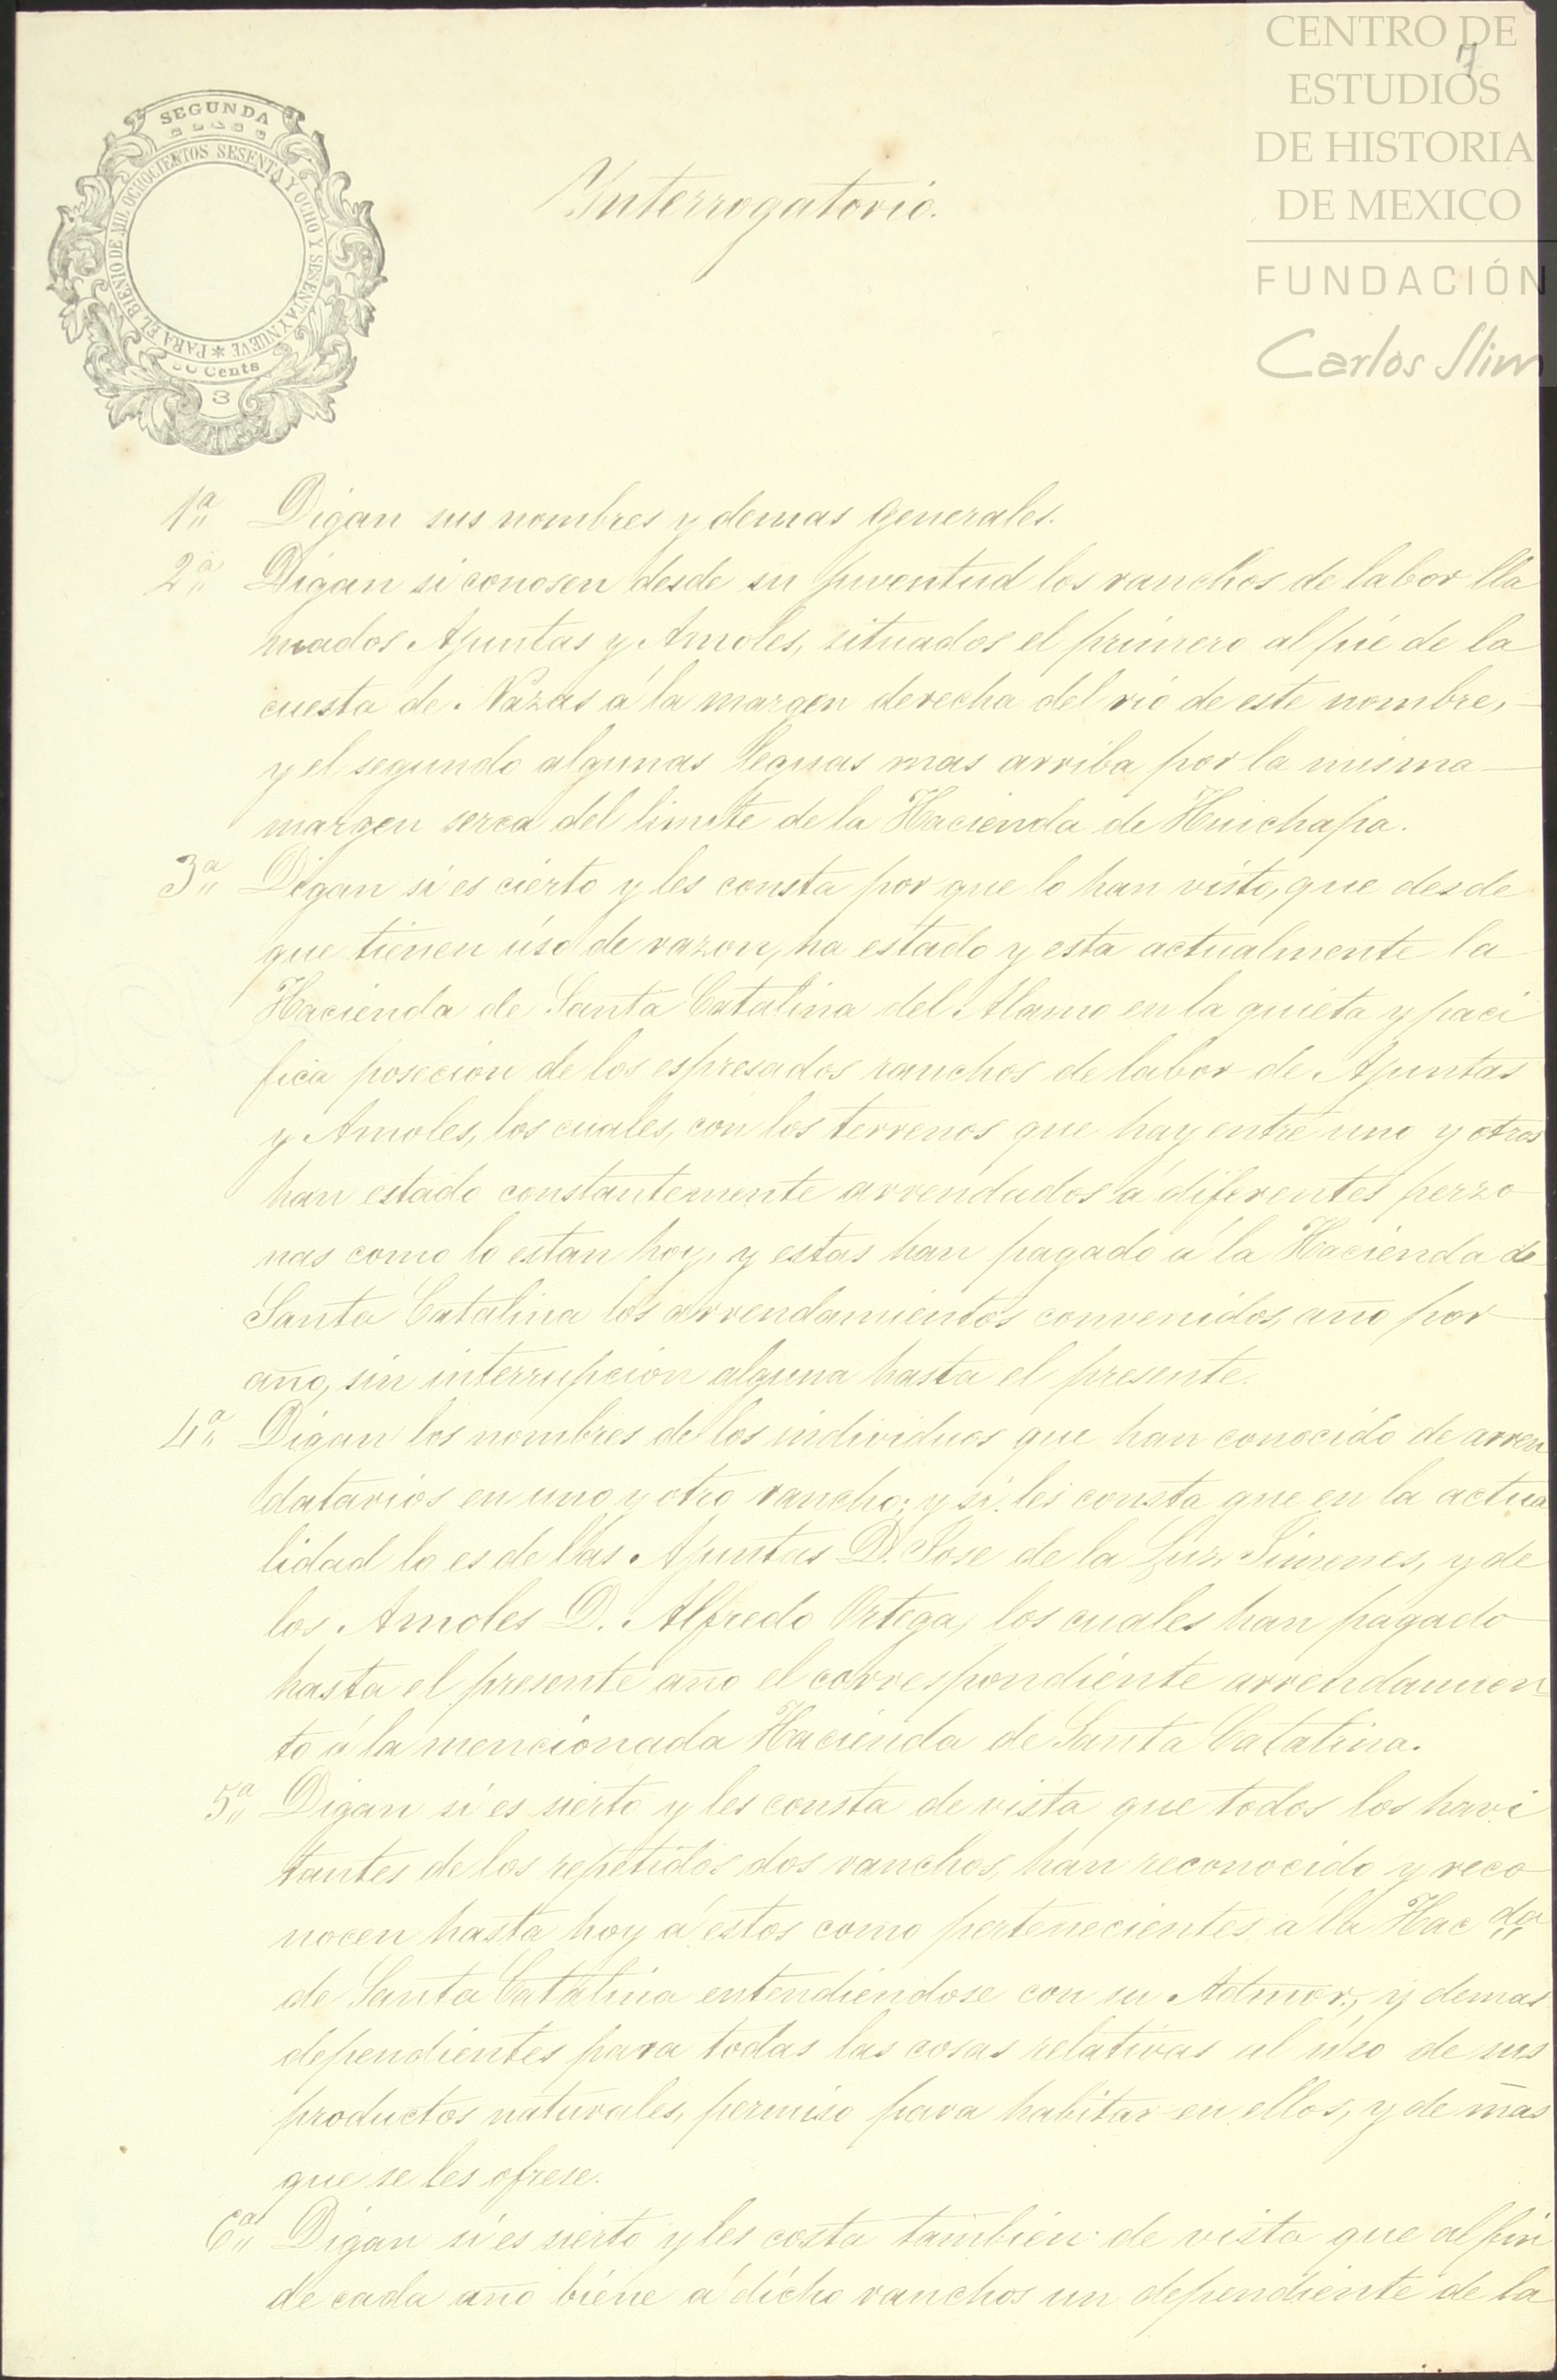 CENTRO DE
ESTUDIOS
DE HISTORIA
DE MEXICO
FUNDACIÓN
Carlos Slim
7
SEGUNDA
PARA EL BIENIO DE MIL OCHOCIENTOS SESENTA Y OCHO Y SESENTA Y NUEVE
Cents
3
Interrogatorio.
1ª Digan sus nombres y demas generales.
2ª Digan si conosen desde su juventud los ranchos de labor lla
mados Ajuntas y Amoles, situados el primero al pié de la
cuesta de Nazas á la margen derecha del rio de este nombre,
y el segundo algunas leguas mas arriba por la misma
margen serca del limite de la Hacienda de Huichapa.
3ª Digan si es cierto y les consta por que lo han visto, que desde
que tienen úso de razon, ha estado y esta actualmente la
Hacienda de Santa Catalina del Alamo en la quieta y paci
fica posecion de los espresados ranchos de labor de Ajuntas
y Amoles, los cuales, con los terrenos que hay entre uno y otros
han estado constantemente arrendados á diferentes perzo
nas como lo estan hoy, y estas han pagado á la Hacienda de
Santa Catalina los arrendamientos convenidos, año por
año, sin interrupcion alguna hasta el presente.
4ª Digan los nombres de los individuos que han conocido de arren
datarios en uno y otro rancho; y si les consta que en la actua
lidad lo es de llas Ajuntas D. Jose de la Luz Simenes, y de
los Amoles D. Alfredo Ortega, los cuales han pagado
hasta el presente año el correspondiente arrendamien
to á la mencionada Hacienda de Santa Catalina.
5ª Digan si es sierto y les consta de vista que todos los havi
tantes de los repetidos dos ranchos, han reconocido y reco
nocen hasta hoy á estos como pertenecientes á la Hacda
de Santa Catalina entendiendose con su Admor., y demas
dependientes para todas las cosas relativas al úzo de sus
productos naturales, permiso para habitar en ellos, y de mas
que se les ofrese.
6ª Digan si es sierto y les costa tambien de vista que al fin
de cada año biene á dicho ranchos un dependiente de la